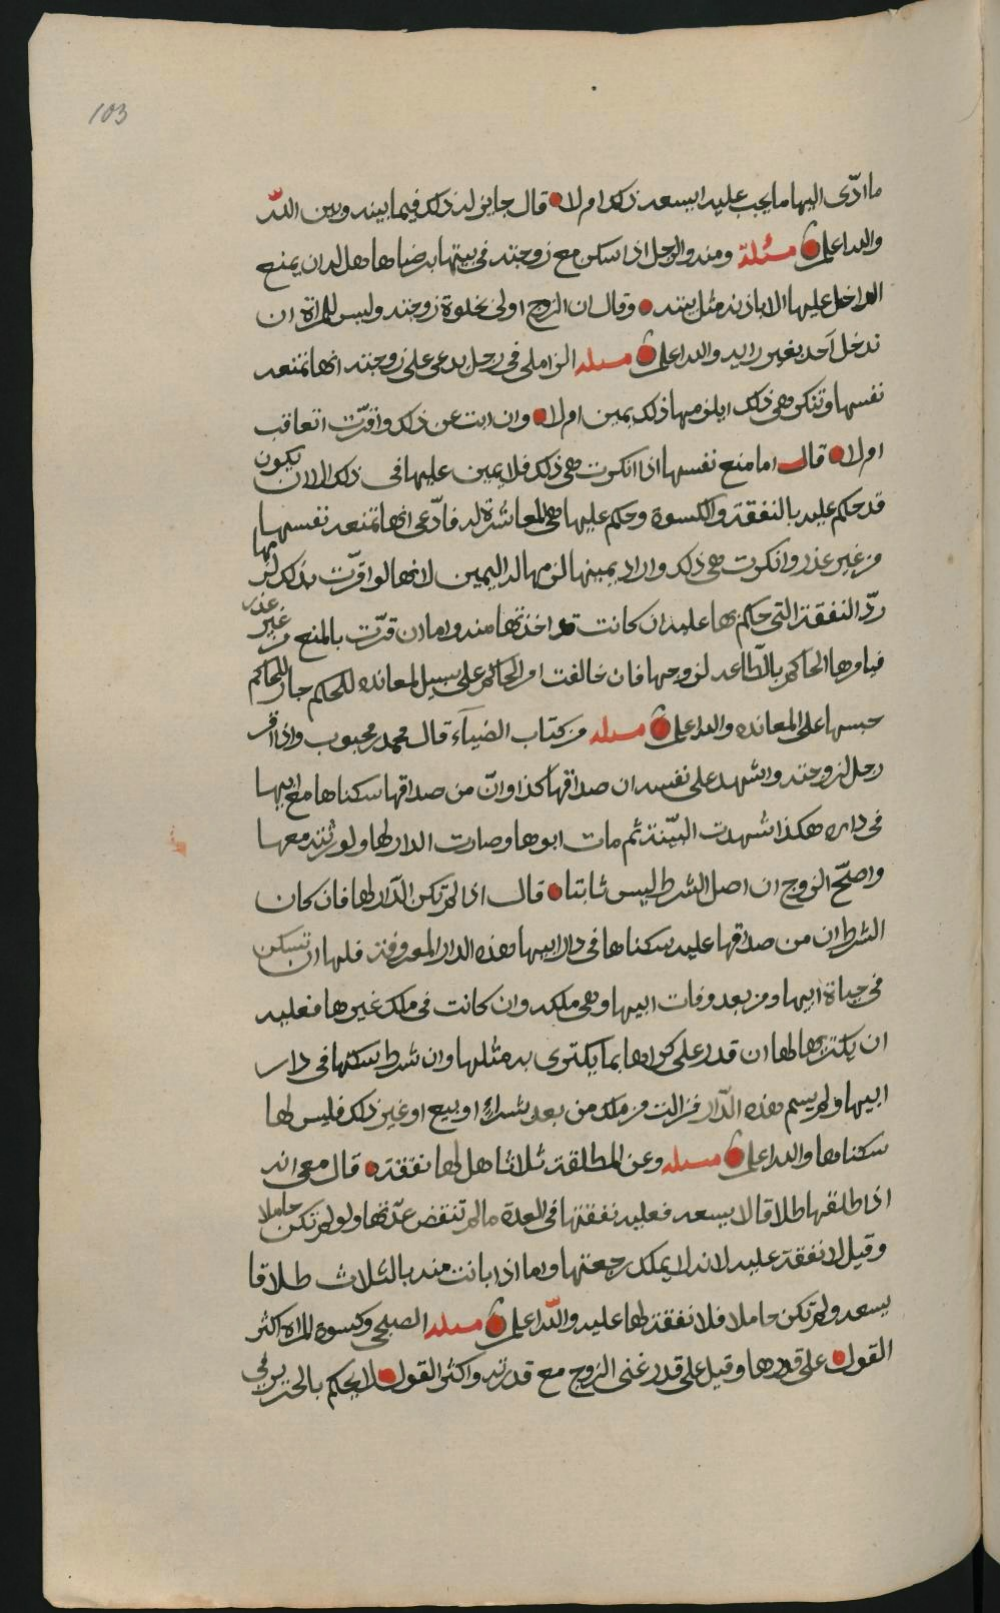 103
ما ادّى اليها ما يجب عليه ايسعه ذلك ام لا قال جايز له ذلك فيما بينه وبين الله
والله اعلم مسئلة ومنه والرجل اذا سكن مع زوجته في بيتها برضاها هل له ان يمنع
الداخل عليها الا باذنه مثل بيته وقال ان الزوج اولى بخلوة زوجته وليس للمراة ان
تدخل احد بغير رايه والله اعلم مسئله الزاملي في رجل يدعي على زوجته انها تمنعه
نفسها وتنكر هي ذلك ايلزمها ذلك يمين ام لا وان ابت عن ذلك واقرّت اتعاقب
ام لا قال اما منع نفسها اذا انكرت هي ذلك فلا يمين عليها في ذلك الا ان يكون
قد حكم عليه بالنفقة والكسوة وحكم عليها هي المعاشرة له فادّعى انها تمنعه نفسها
من غير عذر وانكرت هي ذلك واراد يمينها لزمها له اليمين لانها لو اقرّت بذلك لزمها
ردّ النفقة التي حاكم بها عليه ان كانت قد اخذتها منه واما ان قرّت بالمنع من غير عذر
فيامرها الحاكم بالطاعه لزوجها فان خالفت امر الحاكم على سبيل المعانده للحكم جاز للحاكم
حبسها على المعانده والله اعلم مسئله من كتاب الضياء قال محمد بن محبوب واذا اقر
رجل لزوجته واشهد على نفسه ان صداقها كذا وانّ من صداقها سكناها مع ابيها
في داره هكذا شهدت البيّنة ثم مات ابوها وصارت الدار لها ولورثته معها
واصحّ الزوج ان اصل الشرط ليس ثابتا قال اذا لم تكن الدار لها فان كان
الشرط ان من صداقها عليه سكناها في دار ابيها هذه الدار المعروفة فلها ان تسكن
في حياة ابيها ومن بعد وفات ابيها وهي ملكه وان كانت في ملك غيرها فعليه
ان يكتريها لها ان قدر على كراها بما يكترى به مثلها وان شرط سكنها في دار
ابيها ولم يسم هذه الدّار فزالت من ملكه من بعد بشراء او بيع او غير ذلك فليس لها
سكناها والله اعلم مسئله وعن المطلقة ثلاثا هل لها نفقة قال معي انه
اذا طلقها طلاقا لا يسعه فعليه نفقتها في العدة ما لم تنقض عدّتها ولو لم تكن حاملا
وقيل لا نفقة عليه لانه لا يملك رجعتها واما اذا بانت منه بالثلاث طلاقا
يسعه ولم تكن حاملا فلا نفقة لها عليه والله اعلم مسئله الصبحي وكسوه للمراه اكثر
القول على قدرها وقيل على قدر غنى الزوج مع قدرته واكثر القول لا يحكم بالحرير في